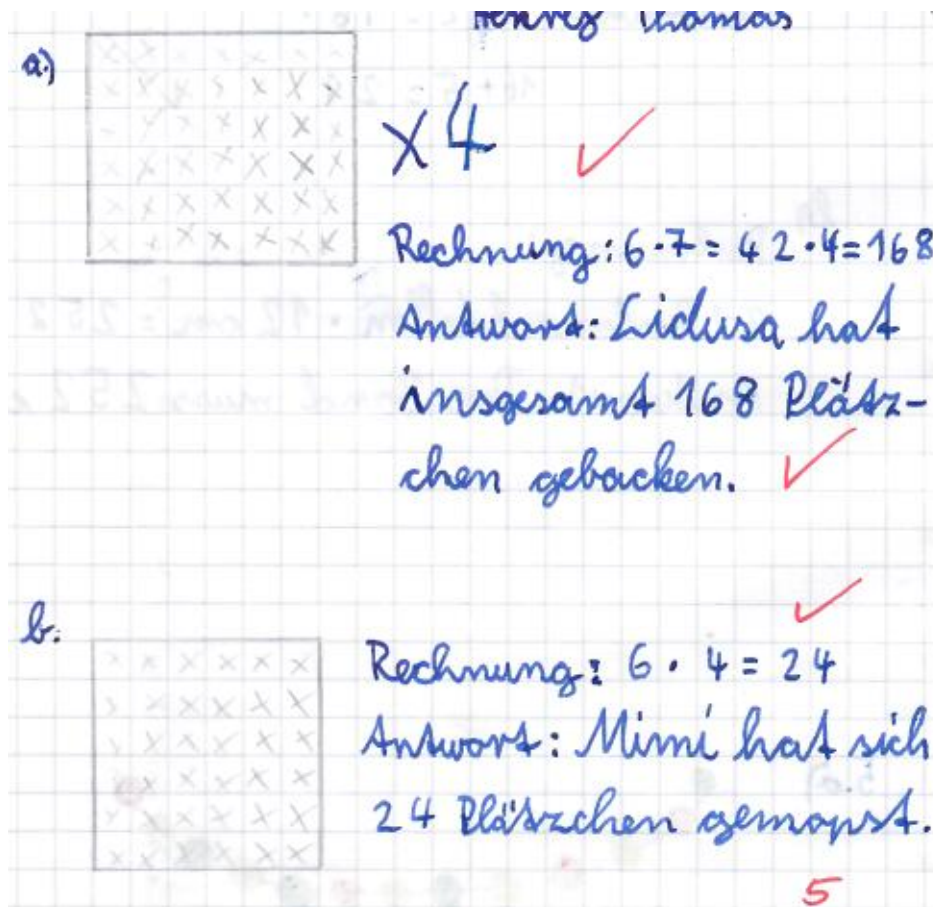 Thomas
a.)
x4
Rechnung: 6·7=42·4=168
Antwort: Lidusa hat
insgesamt 168 Plätz-
chen gebacken.
b.
Rechnung: 6·4=24
Antwort: Mimi hat sich
24 Plätzchen gemopst.
5